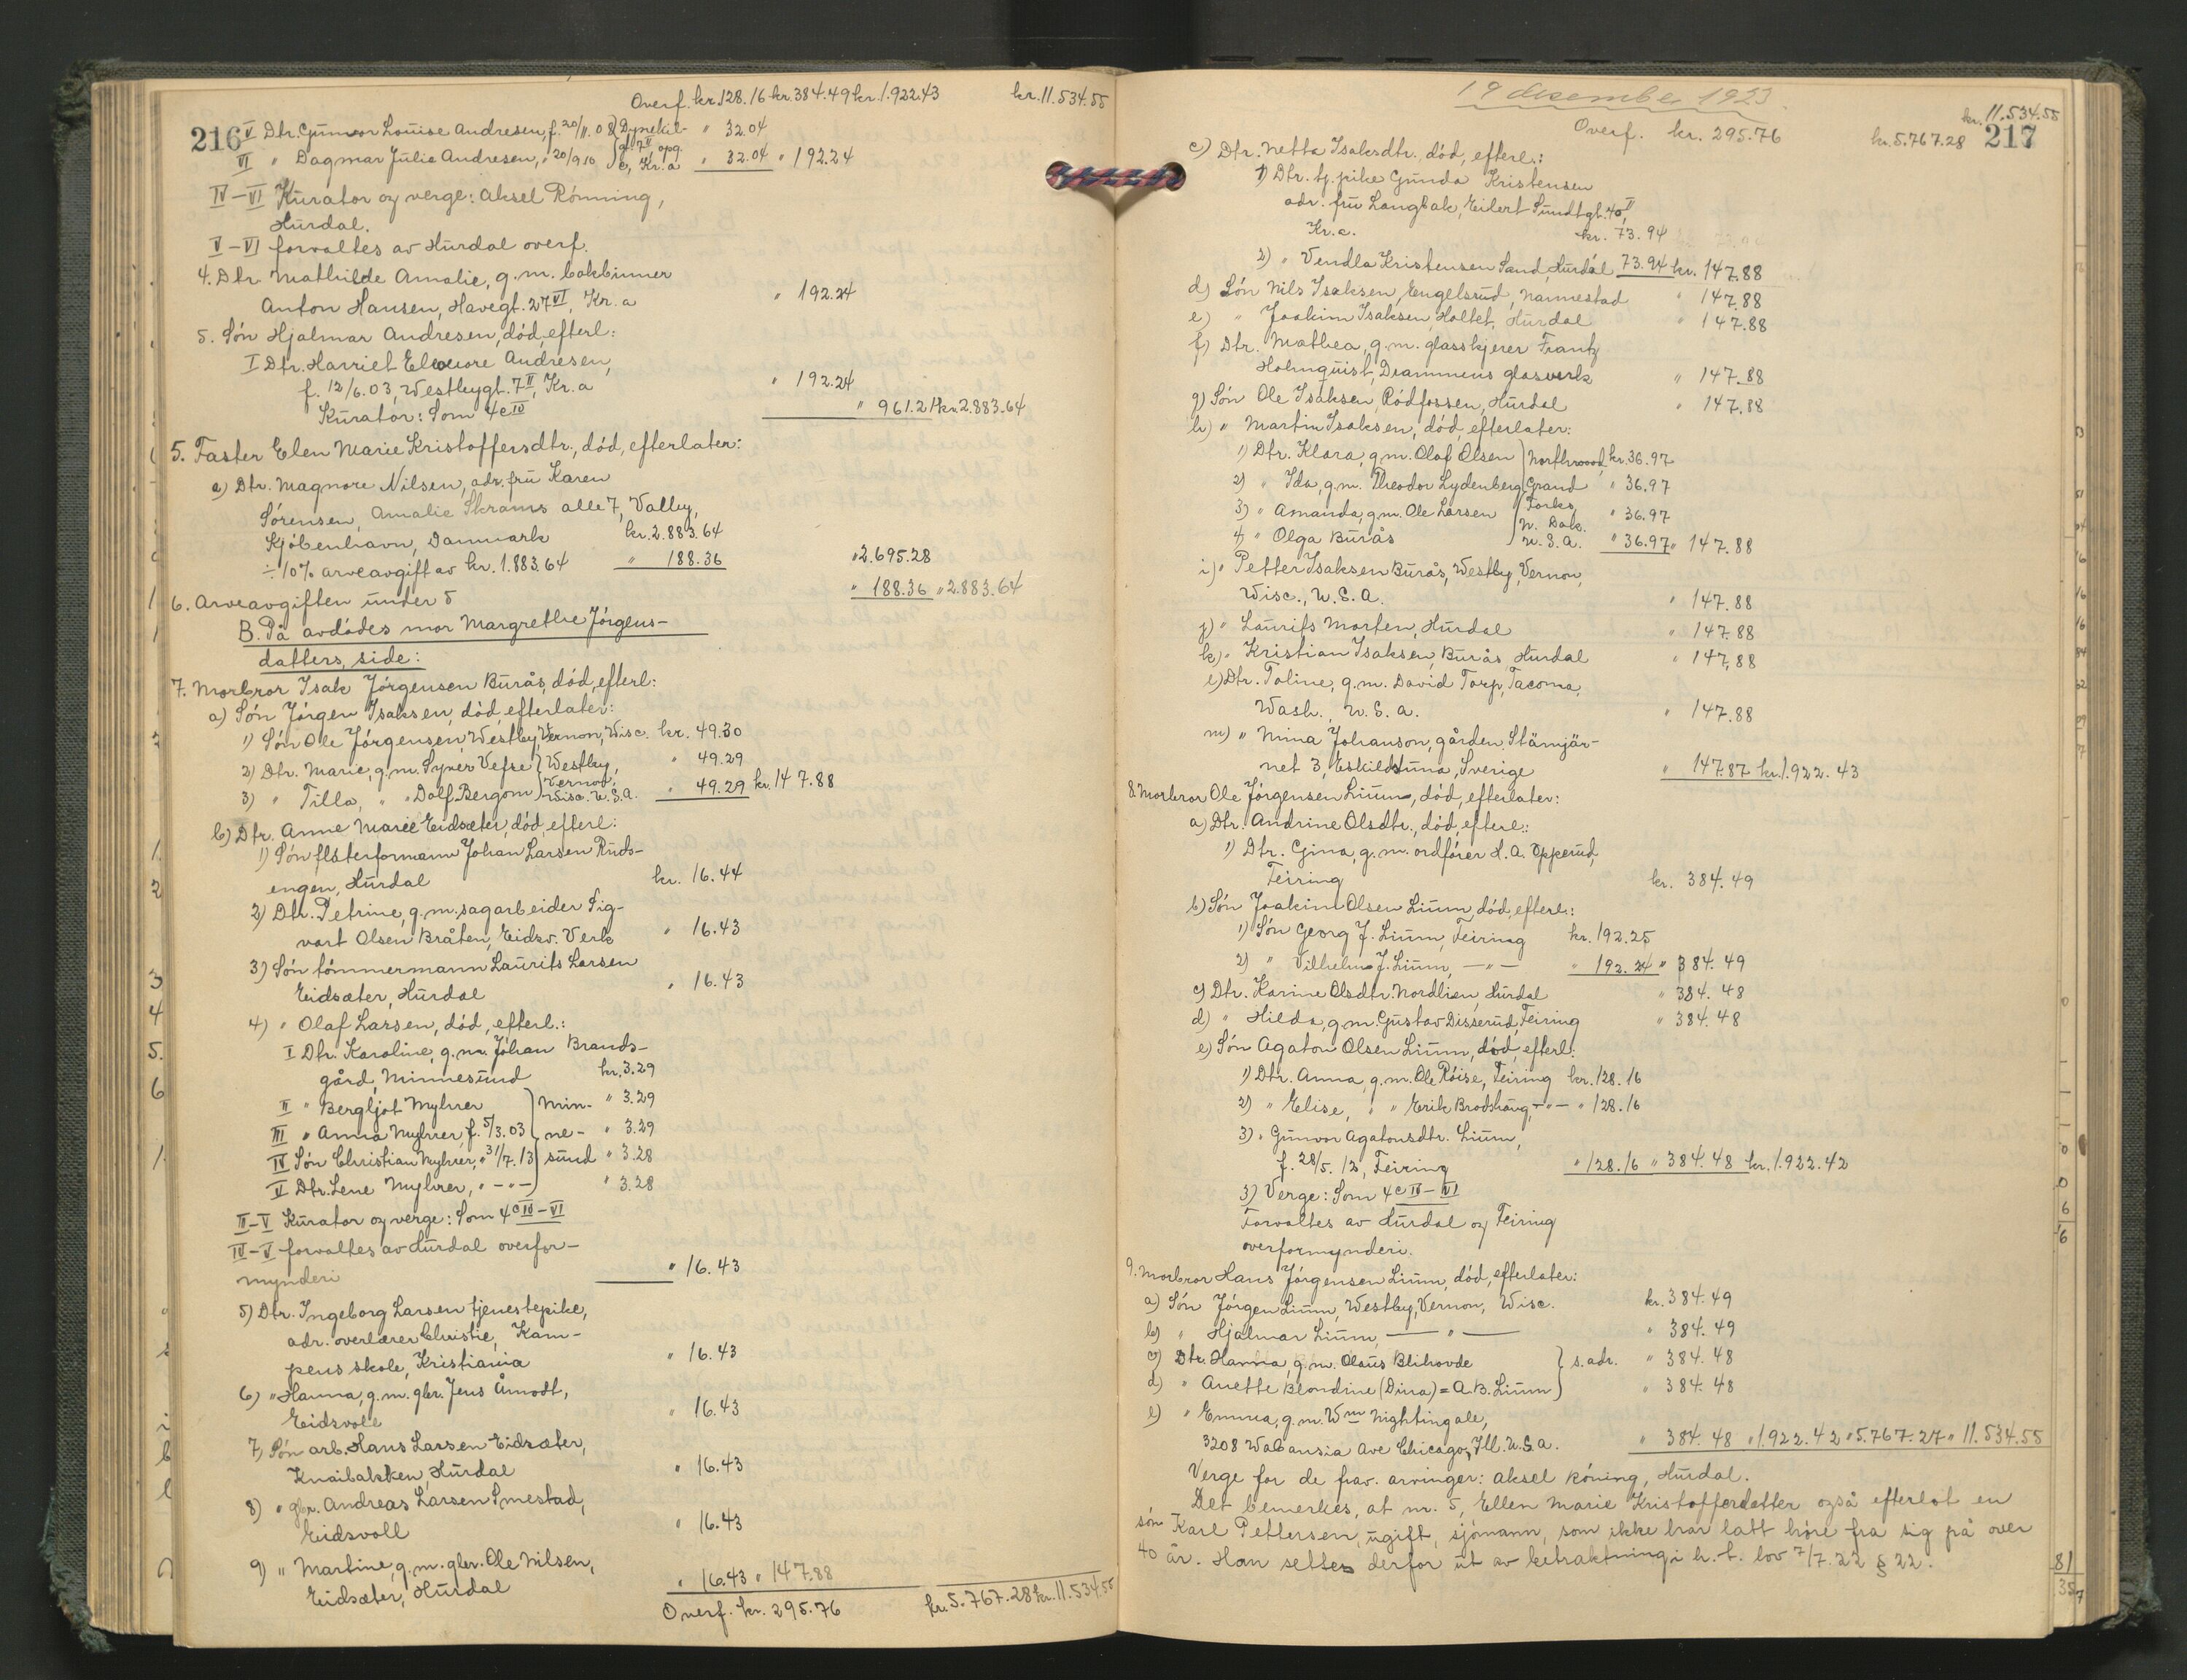 Overf. kr. 128.16 kr. 384.49 kr. 1.922.43 kr. 11.534.55
216 V Dtr. Gunvor Louise Andresen, f. 20/11.08 } Dynekil- " 32.04
VI " Dagmar Julie Andresen, " 20/9.10 } gt. 7 II, opg. e, Kr.a " 32.04 " 192.24
IV-VI Kurator og verge: Aksel Rönning,
Hurdal.
V-VI forvaltes av Hurdal overf.
4. Dtr. Mathilde Amalie, g.m. bokbinner
Anton Hansen, Havegt. 27 VI, Kr.a " 192.24
5. Sön Hjalmar Andresen, död, efterl:
I Dtr. Harriet Eleonore Andresen,
f. 12/6.03, Westbygt. 7 II, Kr.a " 192.24
Kurator: Som 4c IV " 961.21 kr. 2.883.64
5. Faster Elen Marie Kristoffersdtr., död, efterlater:
a) Dtr. Magnore Nilsen, adr. fru Karen
Sörensen, Amalie Skrams alle 7, Valby,
Kjöbenhavn, Danmark kr. 2.883.64
÷ 10% arveavgift av kr. 1.883.64 " 188.36 " 2.695.28
6. Arveavgiften under 5 " 188.36 " 2.883.64
B. På avdödes mor Margrethe Jörgens-
datters side:
7. Morbror Isak Jörgensen Burås, död, efterl:
a) Sön Jörgen Isaksen, död, efterlater:
1) Sön Ole Jörgensen, Westby, Vernon, Wisc. kr. 49.30
2) Dtr. Marie, g.m. Syver Vefse } Westby, " 49.29
3) " Tilla, " " Dolf Bergom } Vernon, Wisc. U.S.A. " 49.29 kr. 147.88
b) Dtr. Anne Marie Eidsæter, död, efterl:
1) Sön flöterformann Johan Larsen Ruds-
engen, Hurdal kr. 16.44
2) Dtr. Petrine, g.m. sagarbeider Sig-
vart Olsen Bråten, Eidsv. Verk " 16.43
3) Sön tömmermann Laurits Larsen
Eidsæter, Hurdal " 16.43
4) " Olaf Larsen, död, efterl.:
I Dtr. Karoline, g.m. Johan Brands-
gård, Minnesund kr. 3.29
II " Bergljot Myhrer } Min- " 3.29
III " Anna Myhrer, f. 5/3.03 } ne- " 3.29
IV Sön Christian Myhrer, " 31/7.13 } sund " 3.28
V Dtr. Lene Myhrer, " -"- " 3.28
II-V Kurator og verge: Som 4c IV-VI
IV-V forvaltes av Hurdal overfor-
mynderi " 16.43
5) Dtr. Ingeborg Larsen tjenestepike,
adr. overlærer Christie, Kam-
pens skole, Kristiania " 16.43
6) " Hanna, g.m. gbr. Jens Åmodt,
Eidsvoll " 16.43
7) Sön arb. Hans Larsen Eidsæter,
Knaibakken, Hurdal " 16.43
8) " gbr. Andreas Larsen Smestad,
Eidsvoll " 16.43
9) " Martine, g.m. gbr. Ole Nilsen,
Eidsæter, Hurdal " 16.43 " 147.88
Overf. kr. 295.76 kr. 5.767.28 kr. 11.534.55
19 desember 1923.
Overf. kr. 295.76 kr. 5.767.28 kr. 11.534.55 217
c) Dtr. Netta Isaksdtr., död, efterl.:
1) Dtr. tj.pike Gunda Kristensen
adr. fru Langbak, Eilert Sundtgt. 40 II,
Kr.a. kr. 73.94
2) " Vendla Kristensen Sand, Hurdal 73.94 kr. 147.88
d) Sön Nils Isaksen, Engelsrud, Nannestad " 147.88
e) " Joakim Isaksen, Holtet, Hurdal " 147.88
f) Dtr. Mathea, g.m. glasskjerer Frantz
Holmquist, Drammens glasverk " 147.88
g) Sön Ole Isaksen, Rödfossen, Hurdal " 147.88
h) " Martin Isaksen, död, efterlater:
1) Dtr. Klara, g.m. Olaf Olsen } Northwood, kr. 36.97
2) " Ida, g.m. Theodor Lydenberg } Grand " 36.97
3) " Amanda, g.m. Ole Larsen } Forks, N. Dak. " 36.97
4) " Olga Burås } U.S.A. " 36.97 " 147.88
i) " Petter Isaksen Burås, Westby, Vernon,
Wisc., U.S.A. " 147.88
j) " Laurits Morten, Hurdal " 147.88
k) " Kristian Isaksen, Burås, Hurdal " 147.88
l) Dtr. Toline, g.m. David Torp, Tacoma,
Wash., U.S.A. " 147.88
m) " Mina Johanson, gården Stämjär-
net 3, Eskilstuna, Sverige " 147.87 kr. 1.922.43
8. Morbror Ole Jörgensen Lium, död, efterlater:
a) Dtr. Andrine Olsdtr., död, efterl.:
1) Dtr. Gina, g.m. ordförer H.A. Opperud,
Feiring kr. 384.49
b) Sön Joakim Olsen Lium, död, efterl.:
1) Sön Georg J. Lium, Feiring kr. 192.25
2) " Vilhelm J. Lium, -"- " 192.24 " 384.49
c) Dtr. Karine Olsdtr. Nordlien, Hurdal " 384.48
d) " Hilda, g.m. Gustav Disserud, Feiring " 384.48
e) Sön Agaton Olsen Lium, död, efterl:
1) Dtr. Anna, g.m. Ole Röise, Feiring kr. 128.16
2) " Elise, " " Erik Brodshaug, -"- " 128.16
3) " Gunvor Agatonsdtr. Lium,
f. 28/5.12, Feiring " 128.16 " 384.48 kr. 1.922.42
3) Verge: Som 4c IV-VI
Forvaltes av Hurdal og Feiring
overformynderi.
9. Morbror Hans Jörgensen Lium, död, efterlater:
a) Sön Jörgen Lium, Westby, Vernon, Wisc. kr. 384.49
b) " Hjalmar Lium, -"- " 384.49
c) Dtr. Hanna, g.m. Olaus Blihovde } s. adr. " 384.48
d) " Anette Blondine (Dina) = A.B. Lium } " 384.48
e) " Emma, g.m. Wm Nightingale,
3208 Wabansia Ave Chicago, Ill. U.S.A. " 384.48 " 1.922.42 " 5.767.27 " 11.534.55
Verge for de frav. arvinger: Aksel Röning, Hurdal.
Det bemerkes, at nr. 5, Ellen Marie Kristofferdatter også efterlot en
sön Karl Pettersen, ugift, sjömann, som ikke har latt höre fra sig på over
40 år. Han settes derfor ut av betraktning i h.t. lov 7/7.22 § 22.